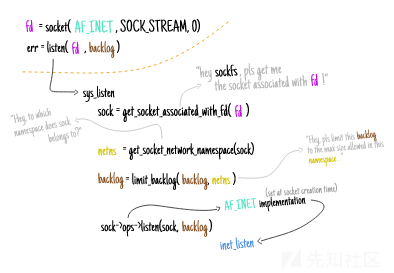 fd = socket( AF_INET, SOCK_STREAM, 0)
err = listen( fd , backlog )
"hey sockfs, pls get me
the socket associated with fd !"
sys_listen
sock = get_socket_associated_with_fd( fd )
"Hey, to which
namespace does sock
belongs to?"
netns = get_socket_network_namespace(sock)
"Hey, pls limit this backlog
to the max size allowed in this
namespace..."
backlog = limit_backlog( backlog, netns )
(set at socket creation time)
AF_INET implementation
sock->ops->listen(sock, backlog)
inet_listen
先知社区